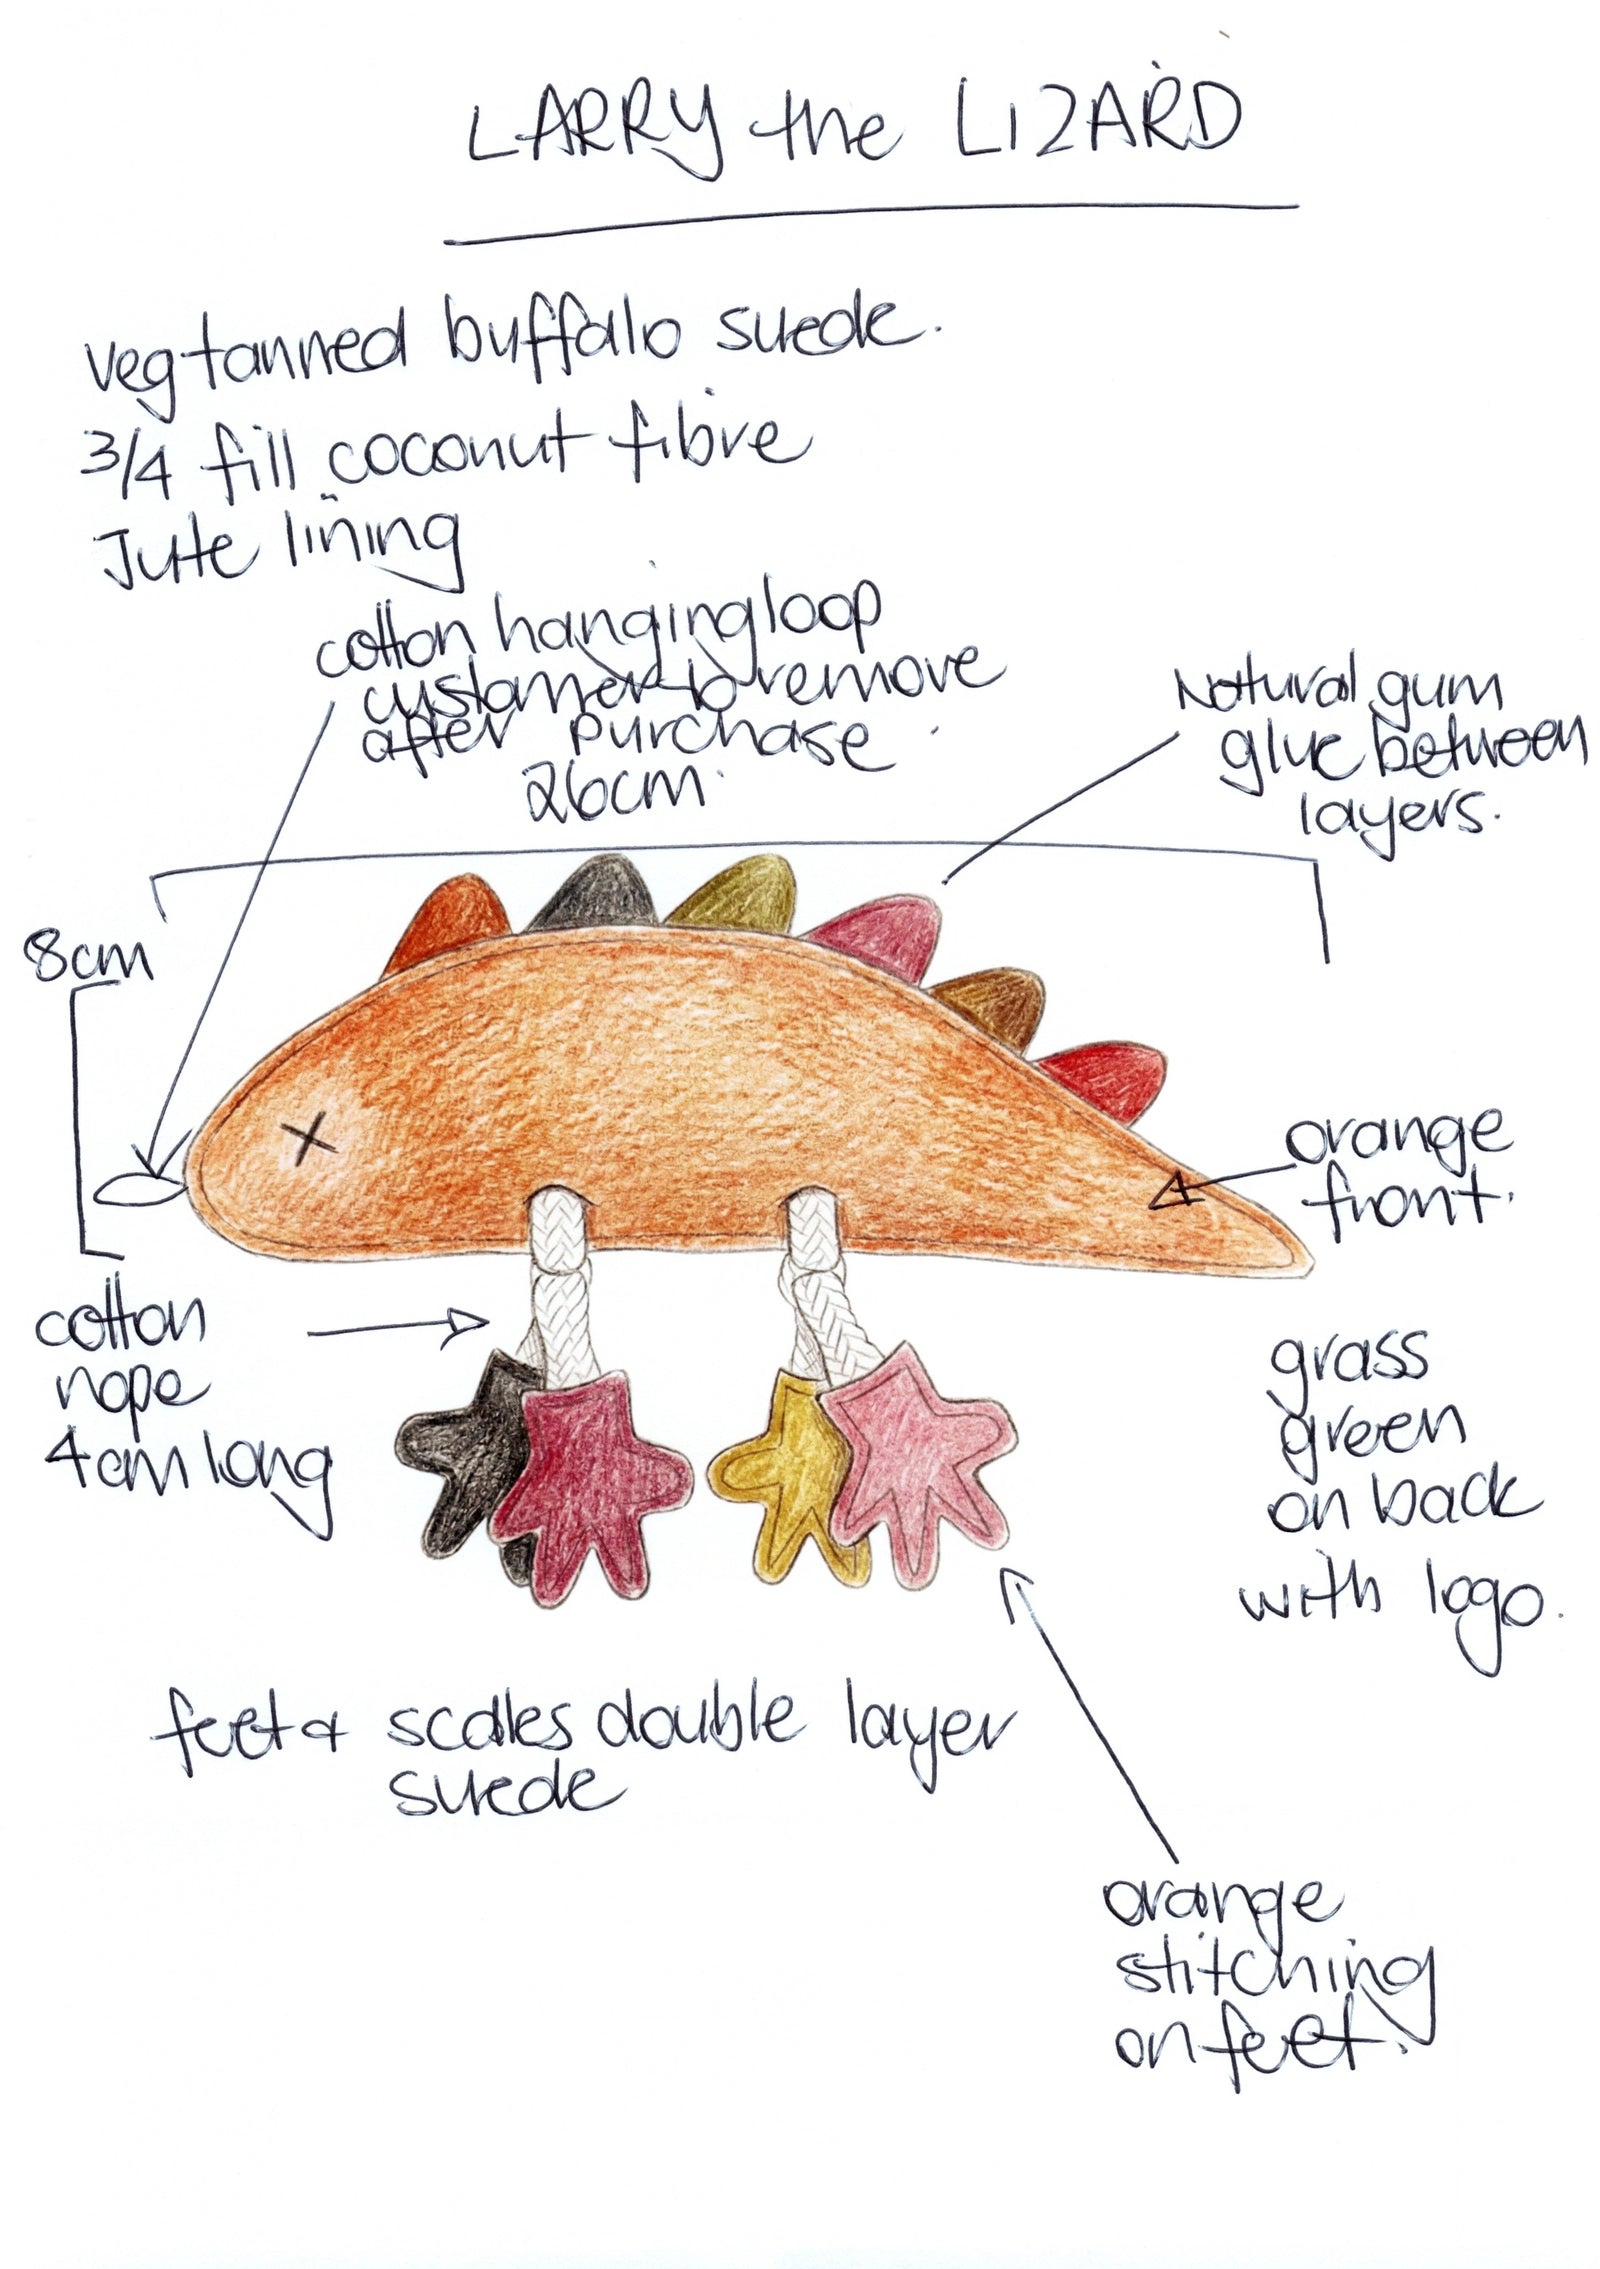 LARRY the LIZARD
veg tanned buffalo suede.
3/4 fill coconut fibre
Jute lining
cotton hanging loop
customer to remove
after purchase
26cm.
Natural gum
glue between
layers.
8cm
orange
front.
cotton
rope
4cm long
grass
green
on back
with logo.
feet & scales double layer
suede
orange
stitching
on feet.